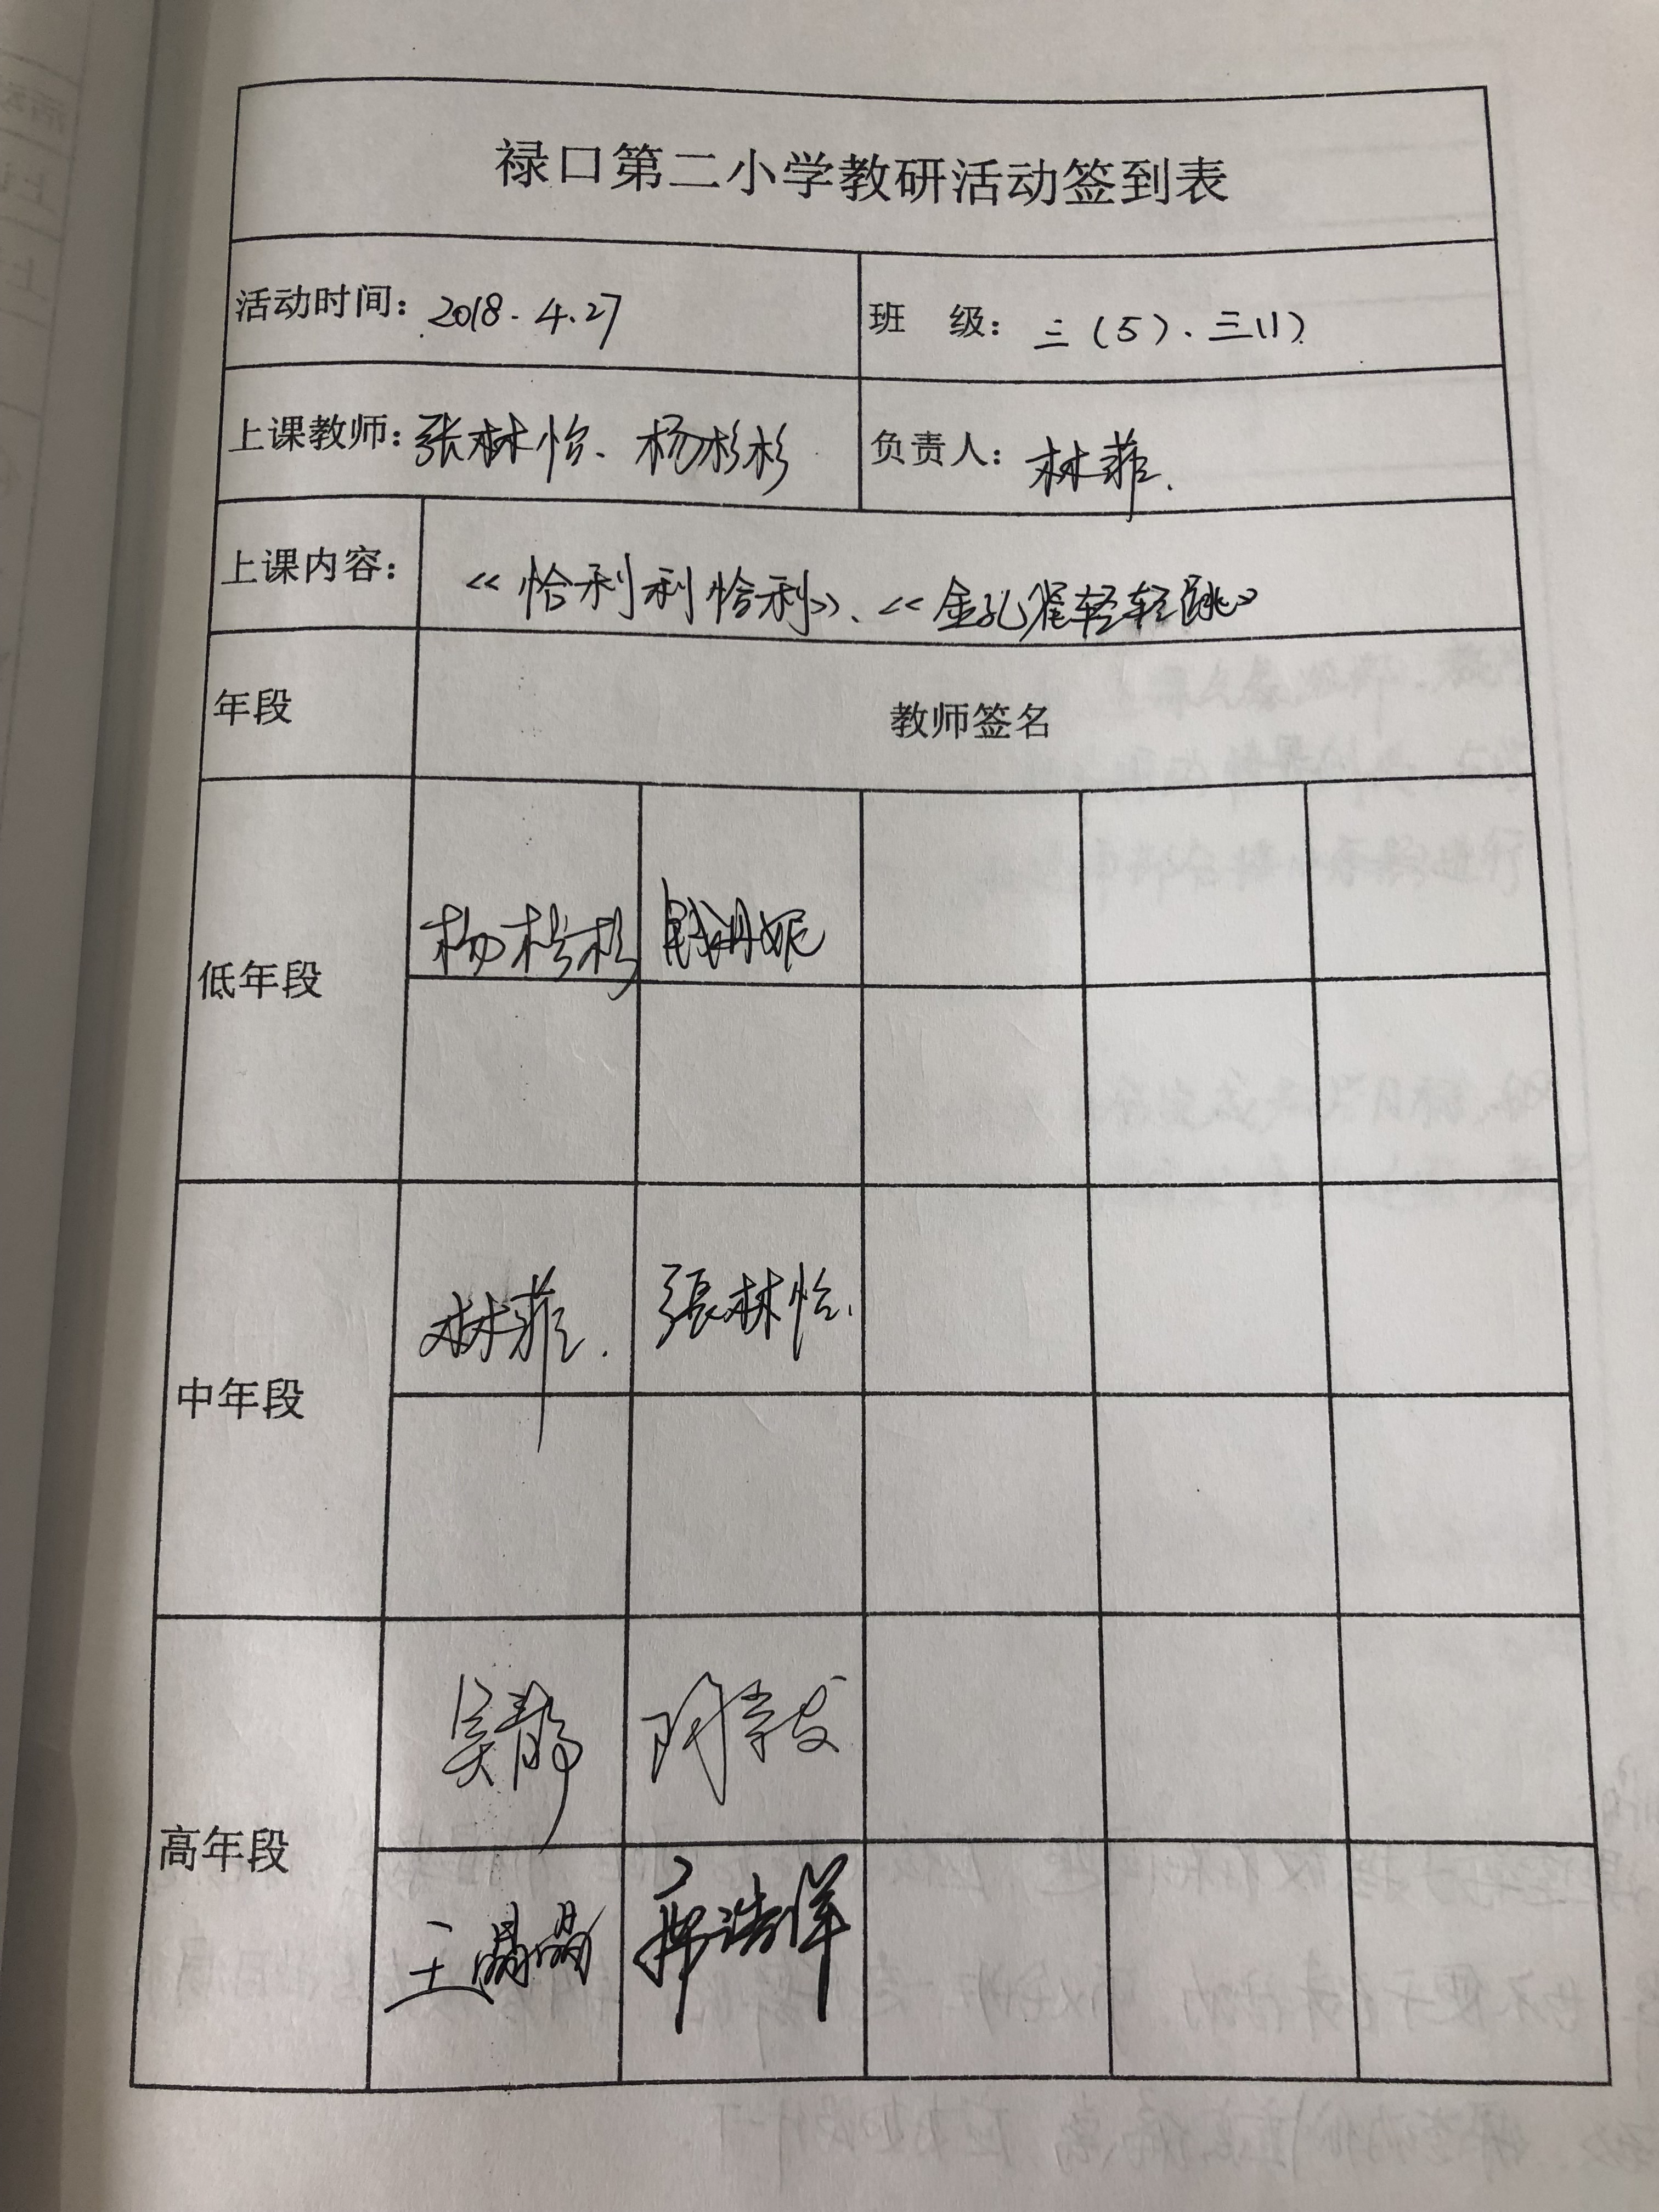 禄口第二小学教研活动签到表
活动时间：2018.4.27 班 级：三（5）、三（1）
上课教师：张林怡、杨杉杉 负责人：林菲.
上课内容：《恰利利恰利》、《金孔雀轻轻跳》
年段 教师签名
杨杉杉
低年段
林菲. 張林怡.
中年段
吴静
高年段
王晶晶